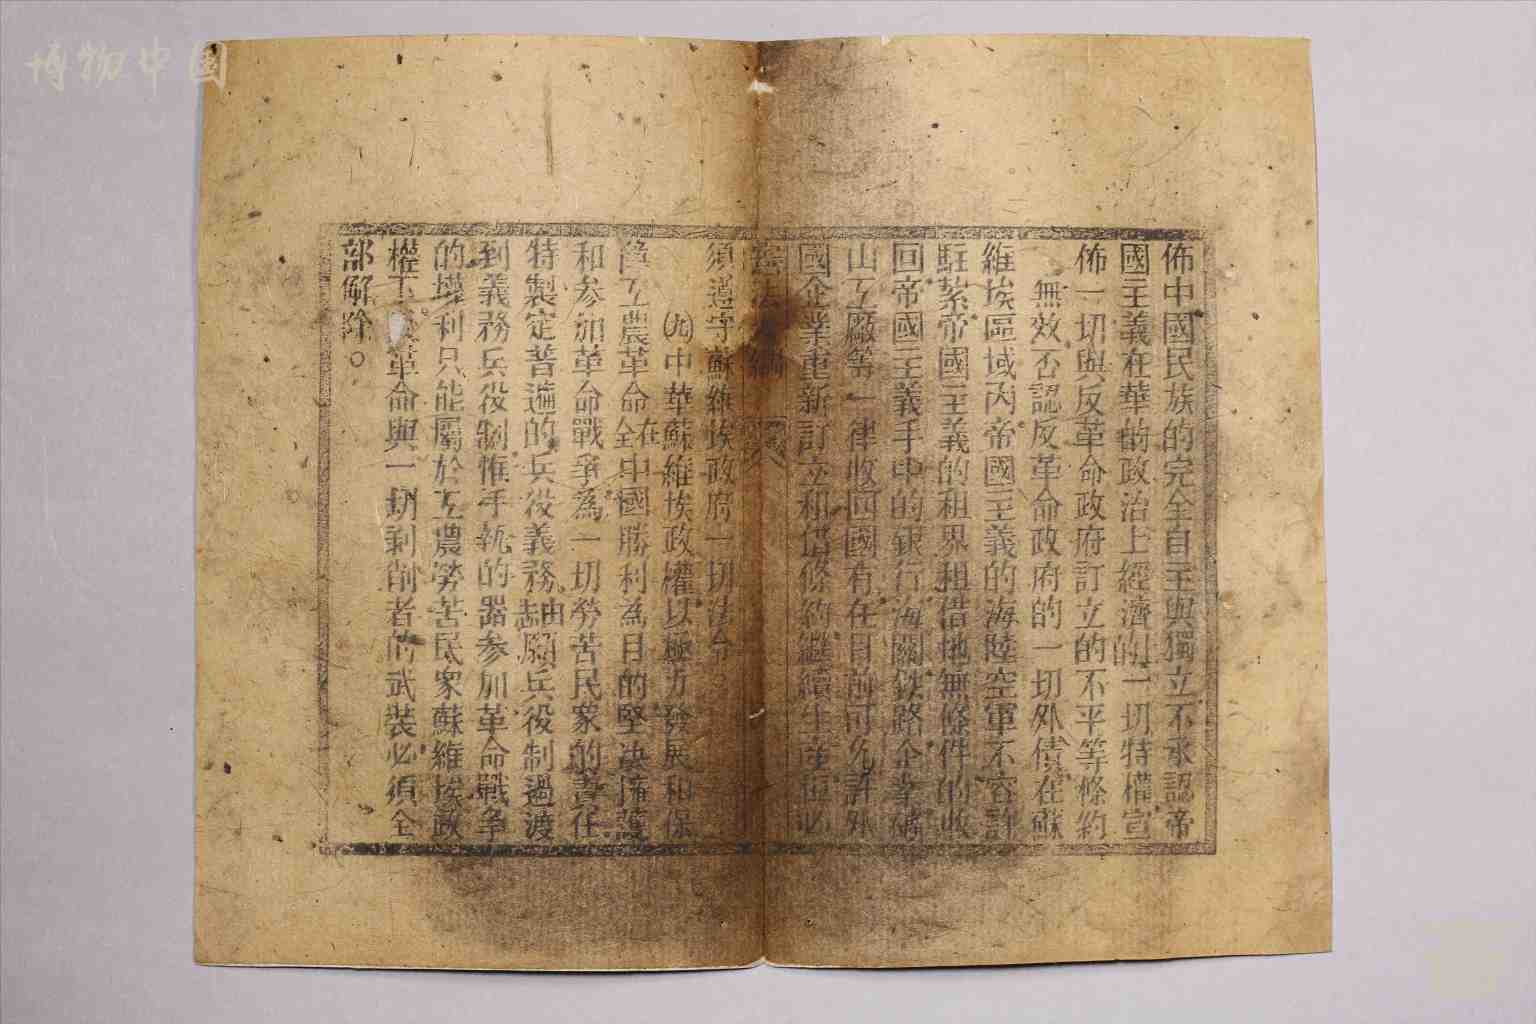 博物中国
佈中國民族的完全自主與獨立不承認帝
國主義在華的政治上經濟的一切特權宣
佈一切與反革命政府訂立的不平等條約
無效否認反革命政府的一切外債在蘇
維埃區域內帝國主義的海陸空軍不容許
駐紮帝國主義的租界租借地無條件的收
回帝國主義手中的銀行海關鉄路企業礦
山工廠等一律收回國有在目前可允許外
國企業重新訂立租借條約繼續生產但必
憲法大綱
須遵守蘇維埃政府一切法令
㈨中華蘇維埃政權以極力發展和保
障工農革命在全中國勝利為目的堅决擁護
和参加革命戰爭為一切勞苦民衆的責任
特製定普遍的兵役義務由志願兵役制過渡
到義務兵役制惟手執的器参加革命戰争
的權利只能屬於工農勞苦民衆蘇維埃政
權下革命與一切剥削者的武裝必須全
部解除。